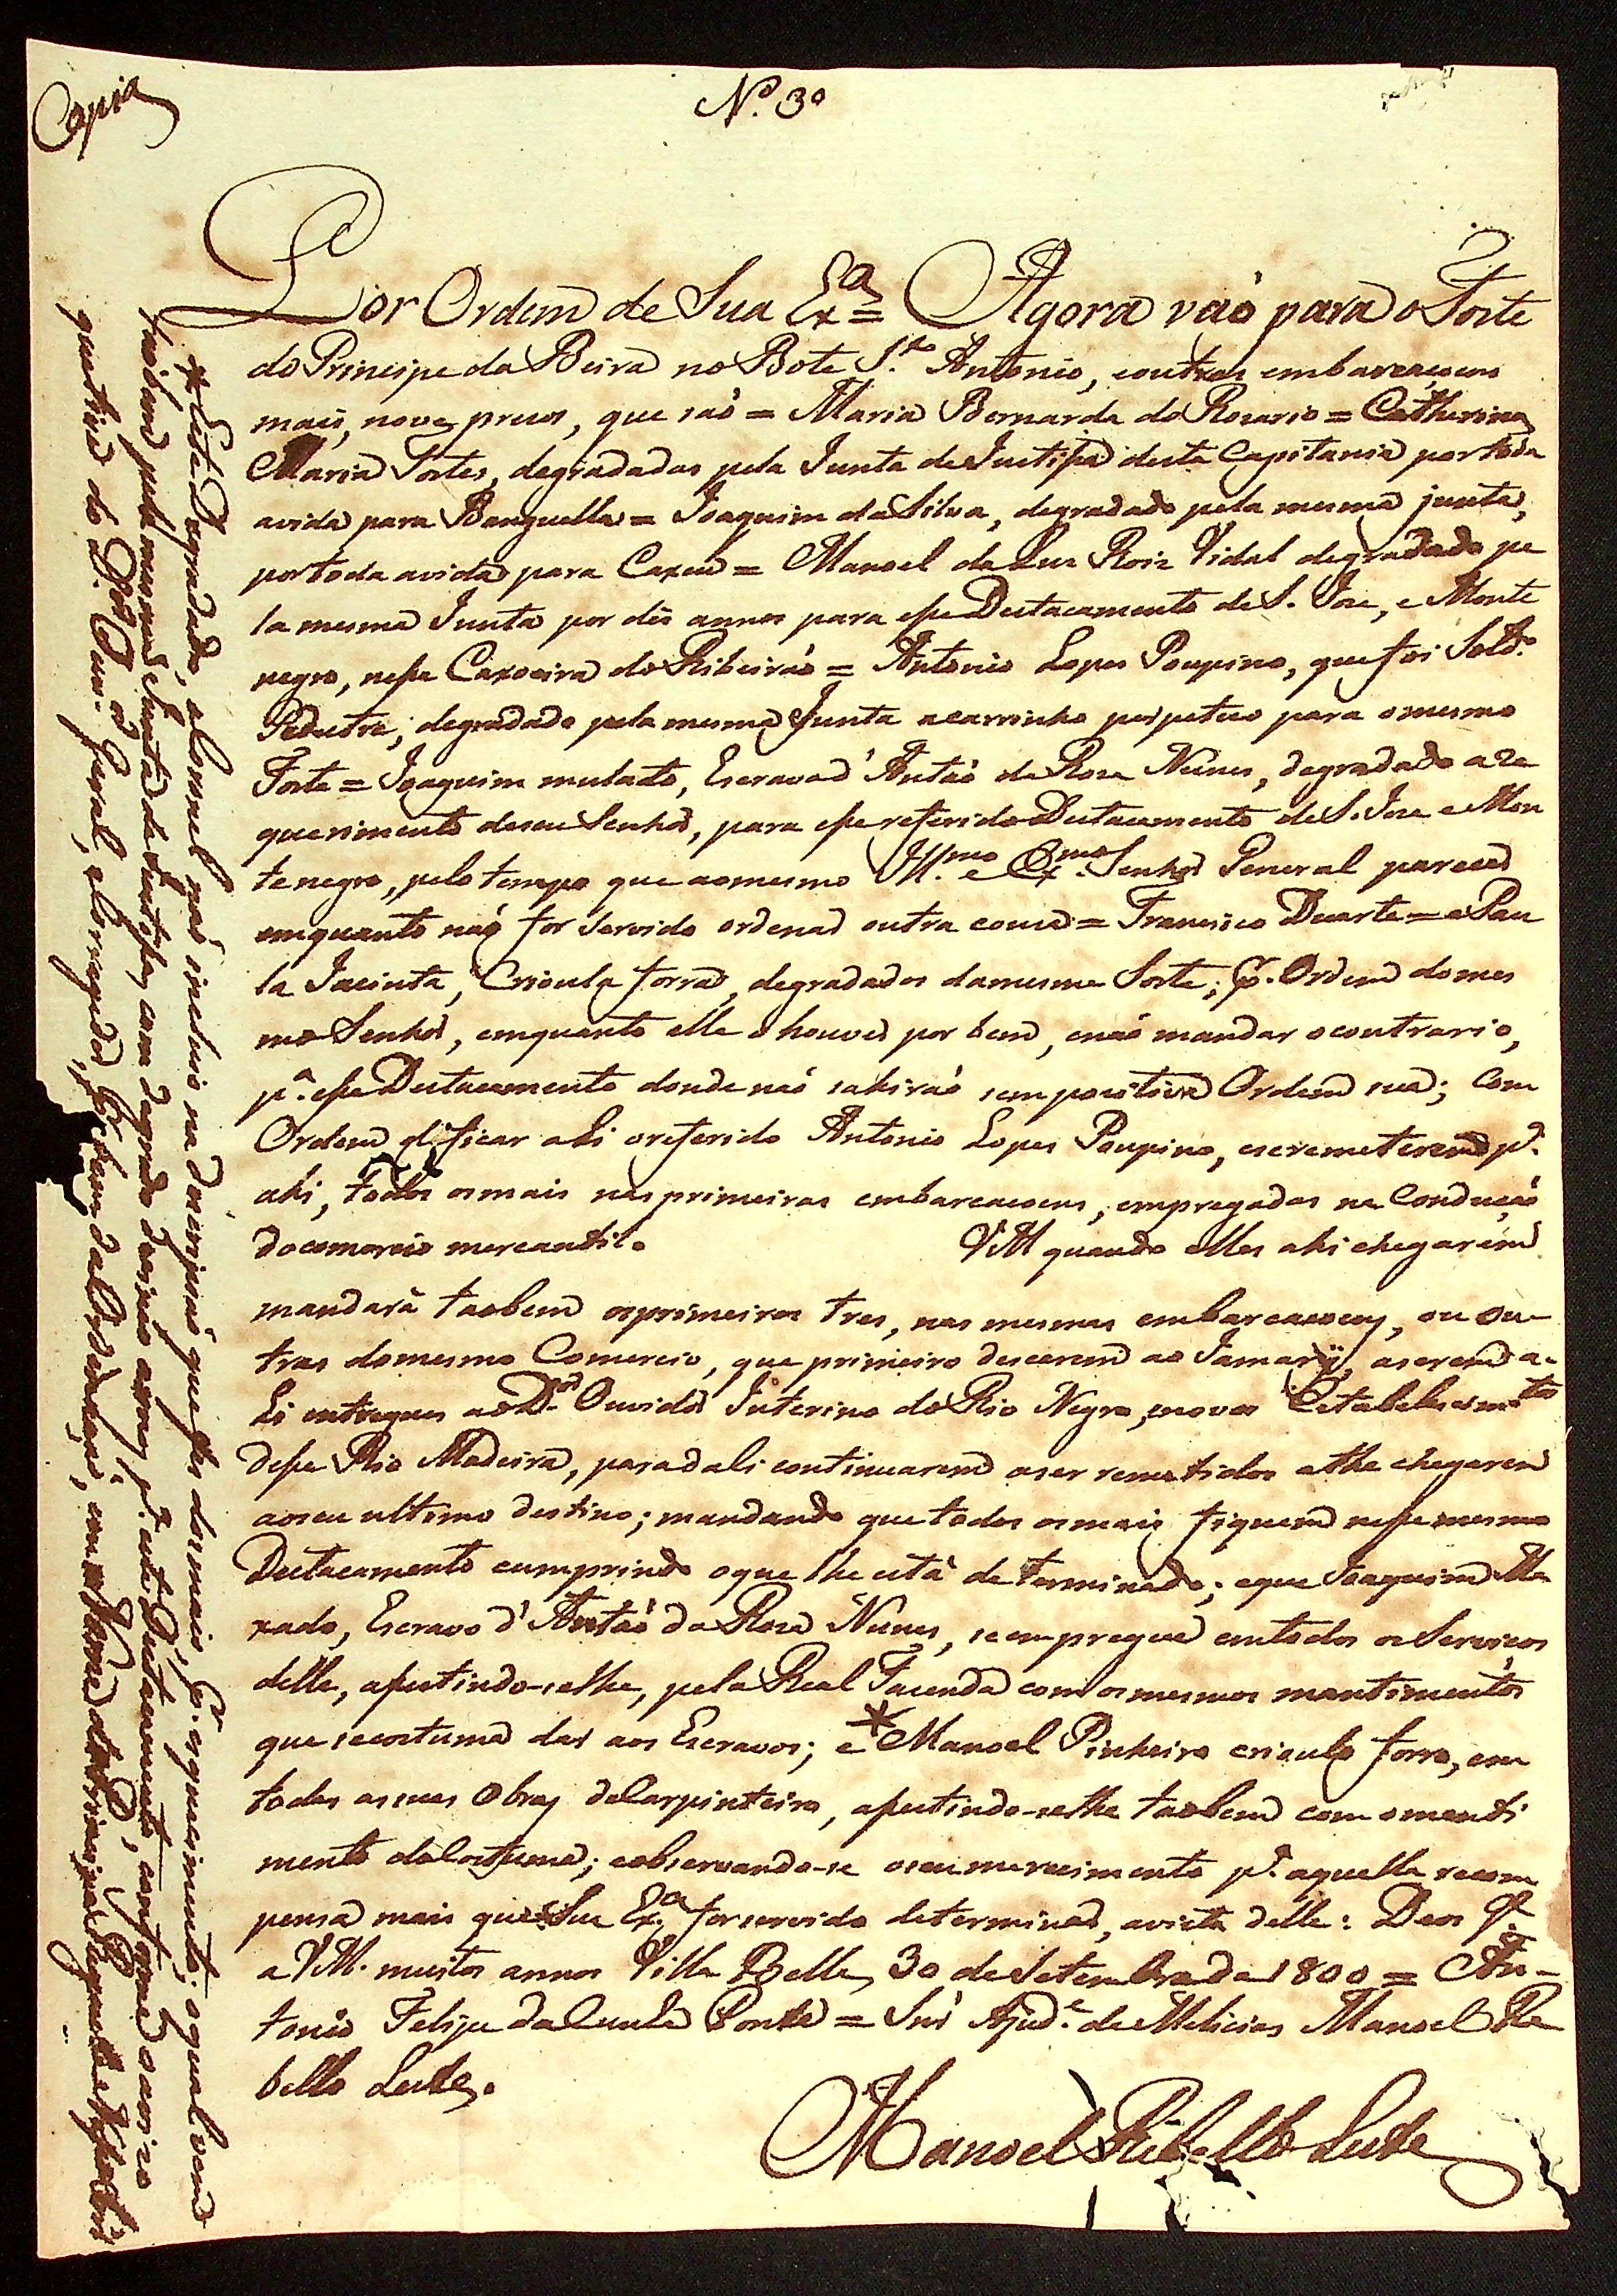 Copia
N.º 3º
Por Ordem de Sua Ex.ª = Agora vaõ para o Forte
do Principe da Beira no Bote S.to Antonio, e outras embarcaçoens
mais, nove prezos, que saõ = Maria Bernarda do Rosario = Catherina
Maria Fortes, degradadas pela Junta de Justissa desta Capitania por toda
avida para Banguella = Joaquim da Silva, degradado pela mesma junta,
por toda avida para Caxeu = Manoel da Luz Roiz Vidal degradado pe
la mesma Junta por dés annos para esse Destacamento de S. Joze, e Monte
negro, nessa Caxoeira do Ribeiraõ = Antonio Lopes Poupino, que foi Sold.º
Pedestre, degradado pela mesma Junta acarrinho perpetuo para omesmo
Forte = Joaquim mulato, Escravo d'Antaõ da Roza Nunes, degradado a re
querimento deseu Senhor, para esse referido Destacamento de S. Joze e Mon
tenegro, pelo tempo que aomesmo Ill.mo e Ex.mo Senhor General parecer
emquanto naõ for servido ordenar outra couza = Francisco Duarte = e Pau
la Jacinta, Crioula forra, degradados damesma Sorte, p.r Ordem domes
mo Senhor, emquanto elle o houver por bem, enaõ mandar ocontrario,
p.ª esse Destacamento donde naõ sahiraõ sem pozitiva Ordem sua; Com
Ordem d' ficar ali oreferido Antonio Lopes Poupino, eseremeterem p.ª
ahi, todos osmais nas primeiras embarcaçoens, empregadas na Conduçaõ
docomercio mercantil. VM quando elles ahi chegarem
mandará taobem osprimeiros tres, nas mesmas embarcaçoens, ou ou-
tras domesmo Comercio, que primeiro descerem ao Jamarÿ, aserem a-
li entregues aoD.or Ouvidor Interino do Rio Negro, enovos Estabelesim.tos
desse Rio Madeira, para dali continuarem aser remetidos athe chegarem
aoseu ultimo destino; mandando que todos osmais fiquem nesse mesmo
Destacamento cumprindo oque lhe está determinado; eque Joaquim Ma
xado, Escravo d'Antaõ da Roza Nunes, se empregue emtodos os Serviços
delle, assistindo-selhe, pela Real Fazenda com osmesmos mantimentos
que secostuma dar aos Escravos; e * Manoel Pinheiro crioulo forro, em
todas assuas Obras deCarpinteiro, assistindo-selhe taobem com omanti
mento doCostume; eobservando-se oseu merecimento p.ª aquella recom
pensa mais que Sua Ex.ª for servido determinar, avista delle: Deos g.e
a VM. muitos annos Villa Bella, 30 de Setembro de 1800 = An-
tonio Felipe da Cunha Ponte = Snr̃ Ajud.e de Melicias Manoel Re
bello Leite.
Manoel Rebello Leite
* Este Degradado, a Coronel naõ incluio na descripsaõ que fes dosmais, p.r esquecimento; oqual vem
taobem pela mesma Junta de Justissa, com degredo desinco annos p.ª este Destacamento, conforme o avizo
que tive do D.or Ouv.or geral, e Corregedor